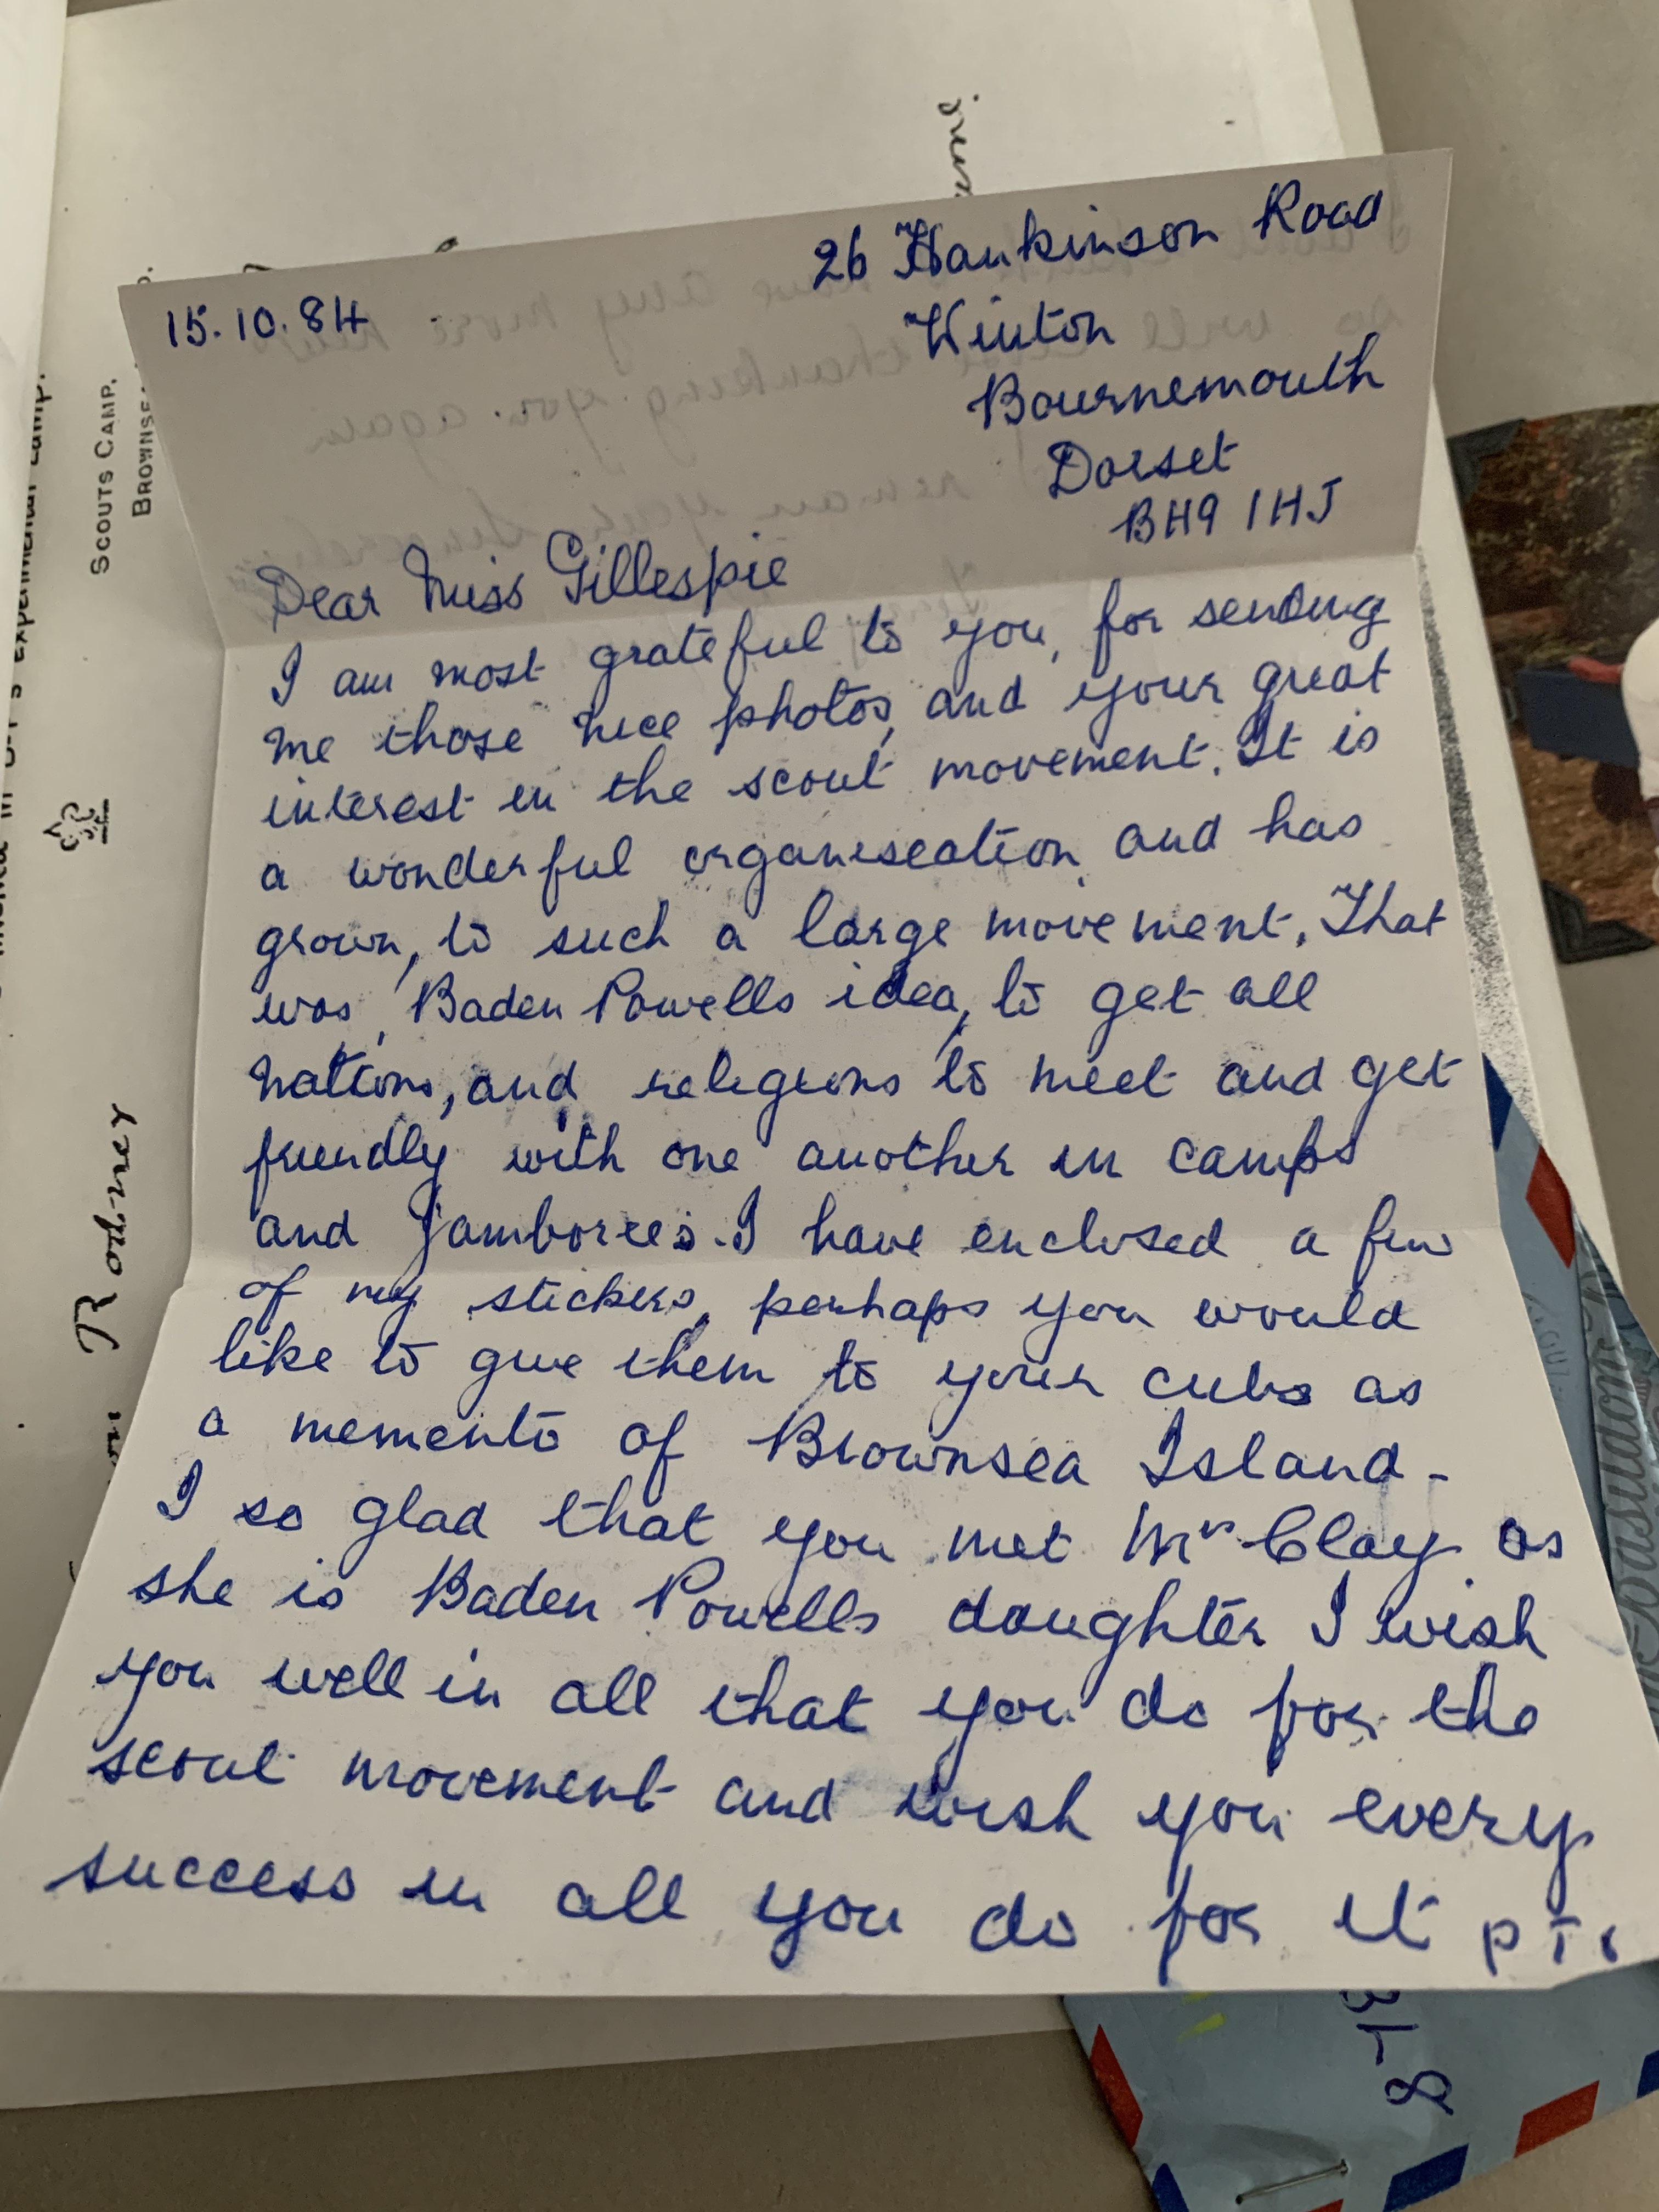 15.10.84
26 Hankinson Road
Winton
Bournemouth
Dorset
BH9 1HJ
Dear Miss Gillespie
I am most grateful to you, for sending
me those nice photos, and your great
interest in the scout movement. It is
a wonderful organiseation, and has
grown, to such a large movement. That
was, Baden Powells idea, to get all
nations, and religions to meet and get
friendly with one another in camps
and jamborees. I have enclosed a few
of my stickers, perhaps you would
like to give them to your cubs as
a memento of Brownsea Island -
I so glad that you met Mrs Clay as
she is Baden Powells daughter I wish
you well in all that you do for the
scout movement and wish you every
success in all you do for it P T
SCOUTS CAMP,
BROWNSEA
Rodney
experimental camp.